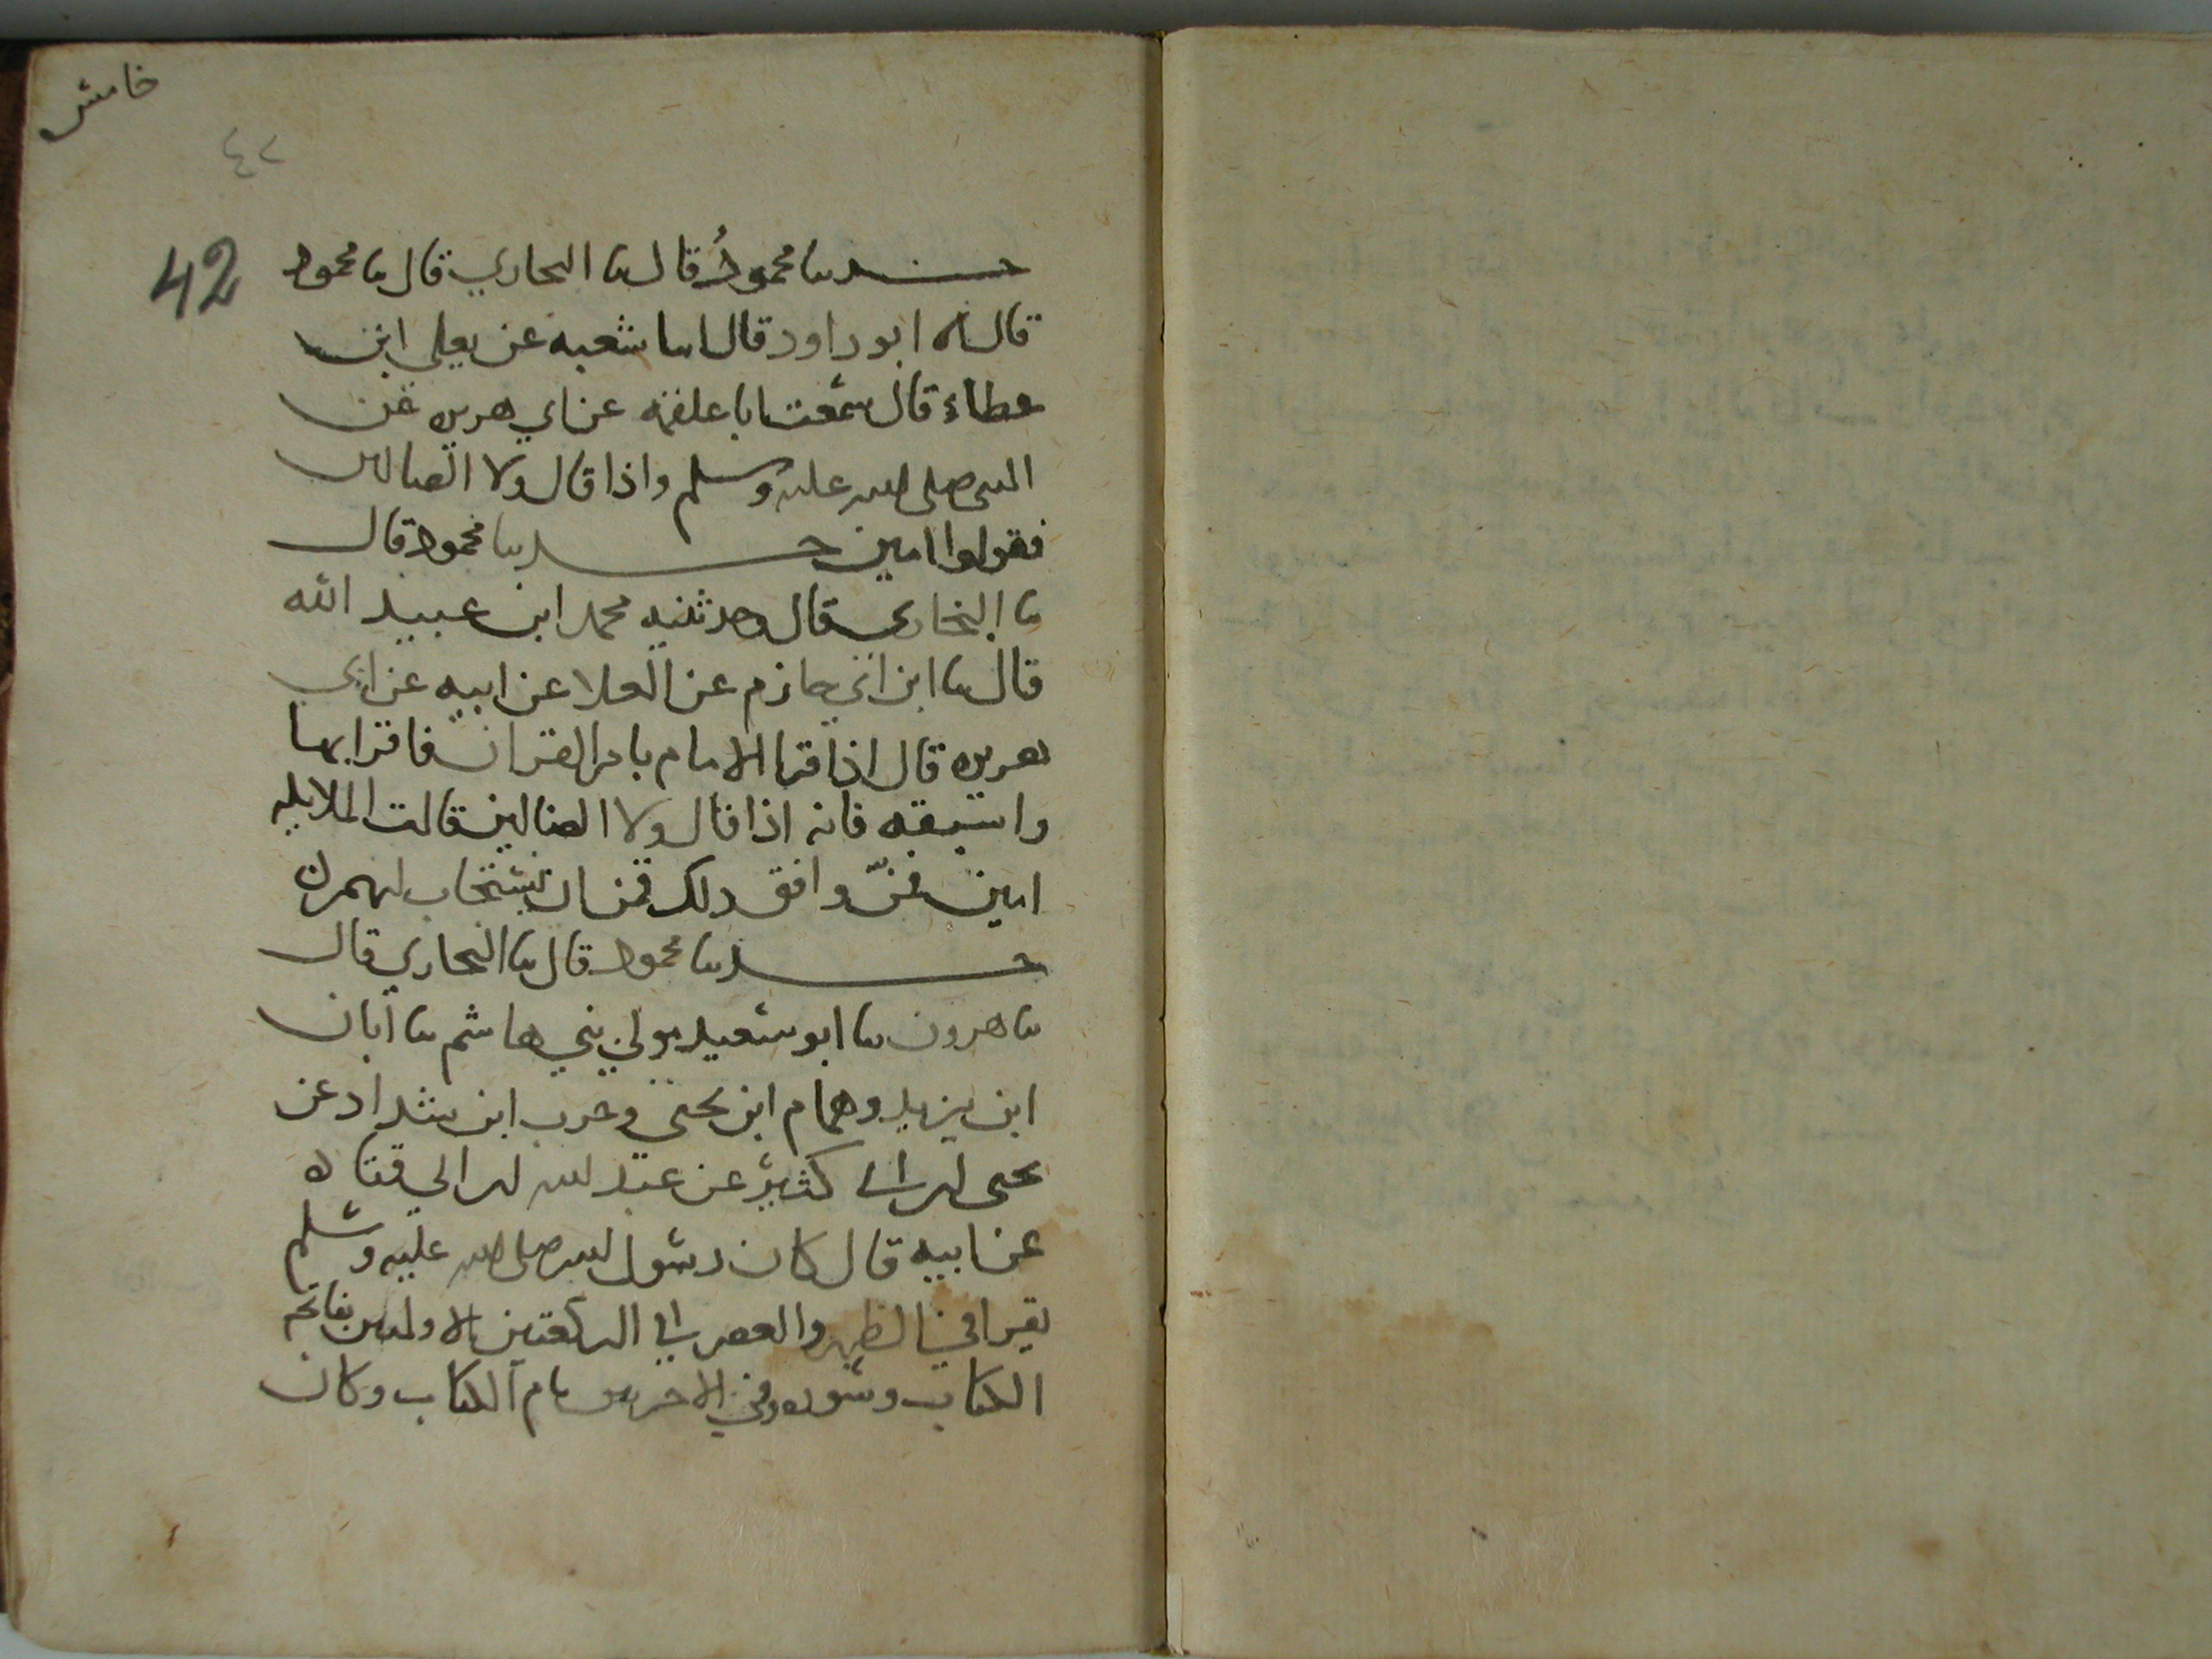 خامس
٤٢
42
حدثنا محمودُ قال ثنا البخاري قال ثنا محمود
قال ثنا ابو داود قال انبا شعبه عن يعلى ابن
عطاء قال سمعت ابا علقمه عن ابي هريره عن
النبي صلى الله عليه وسلم واذا قال ولا الضالين
فقولوا امين حدثنا محمود قال
ثنا البخاري قال وحدثنيه محمد ابن عبيد الله
قال ثنا ابن ابي حازم عن العلا عن ابيه عن ابي
هريره قال اذا قرا الامام بام القران فاقرا بها
واسبقه فانه اذا قال ولا الضالين قالت الملايكه
امين فمن وافق ذلك قمن ان يستجاب لهم
حدثنا محمود قال ثنا البخاري قال
ثنا هرون ثنا ابو سعيد مولى بني هاشم ثنا ابان
ابن يزيد وهمام ابن يحيى وحرب ابن شداد عن
يحيى ابن ابي كثير عن عبد الله ابن ابي قتاده
عن ابيه قال كان رسول الله صلى الله عليه وسلم
يقرا في الظهر والعصر في الركعتين الاوليين بفاتحه
الكتاب وسوره وفي الاخريين بام الكتاب وكان